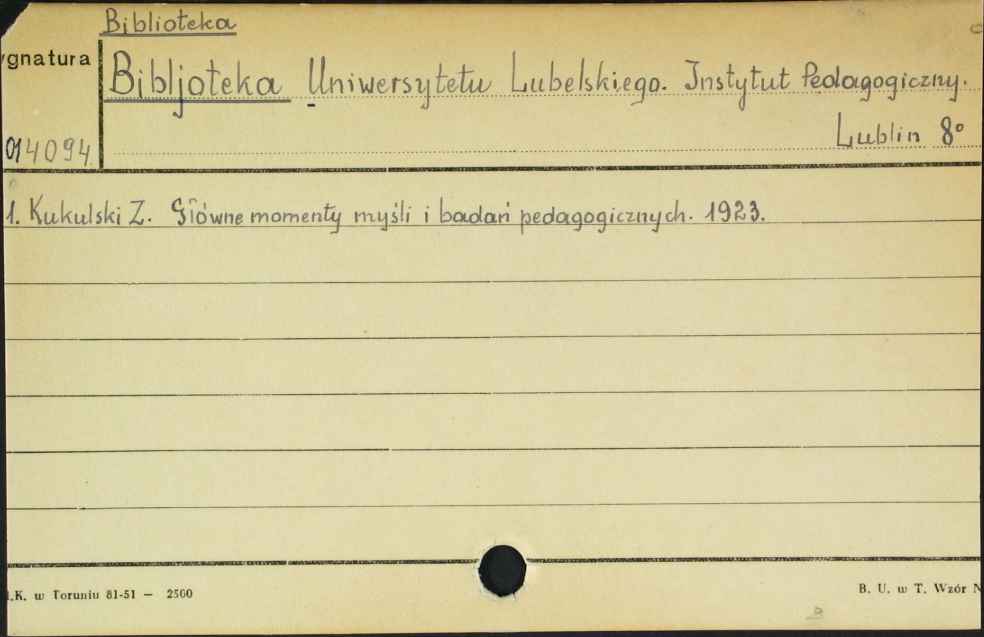 Biblioteka
ygnatura
Bibljoteka Uniwersytetu Lubelskiego. Instytut Pedagogiczny.
014094
Lublin 8°
1. Kukulski Z. Główne momenty myśli i badań pedagogicznych. 1923.
.K. w Toruniu 81-51 — 2500
B. U. w T. Wzór N